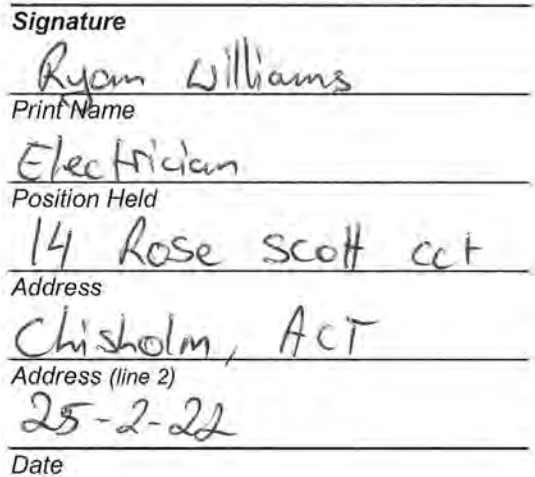 Signature
Ryan Williams
Print Name
Electrician
Position Held
14 Rose Scott cct
Address
Chisholm, ACT
Address (line 2)
25-2-22
Date